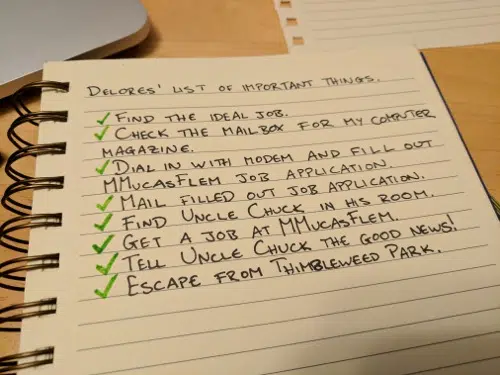 DELORES' LIST OF IMPORTANT THINGS.
✓ FIND THE IDEAL JOB.
✓ CHECK THE MAILBOX FOR MY COMPUTER
MAGAZINE.
✓ DIAL IN WITH MODEM AND FILL OUT
MMUCASFLEM JOB APPLICATION.
✓ MAIL FILLED OUT JOB APPLICATION.
✓ FIND UNCLE CHUCK IN HIS ROOM.
✓ GET A JOB AT MMUCASFLEM.
✓ TELL UNCLE CHUCK THE GOOD NEWS!
✓ ESCAPE FROM THIMBLEWEED PARK.